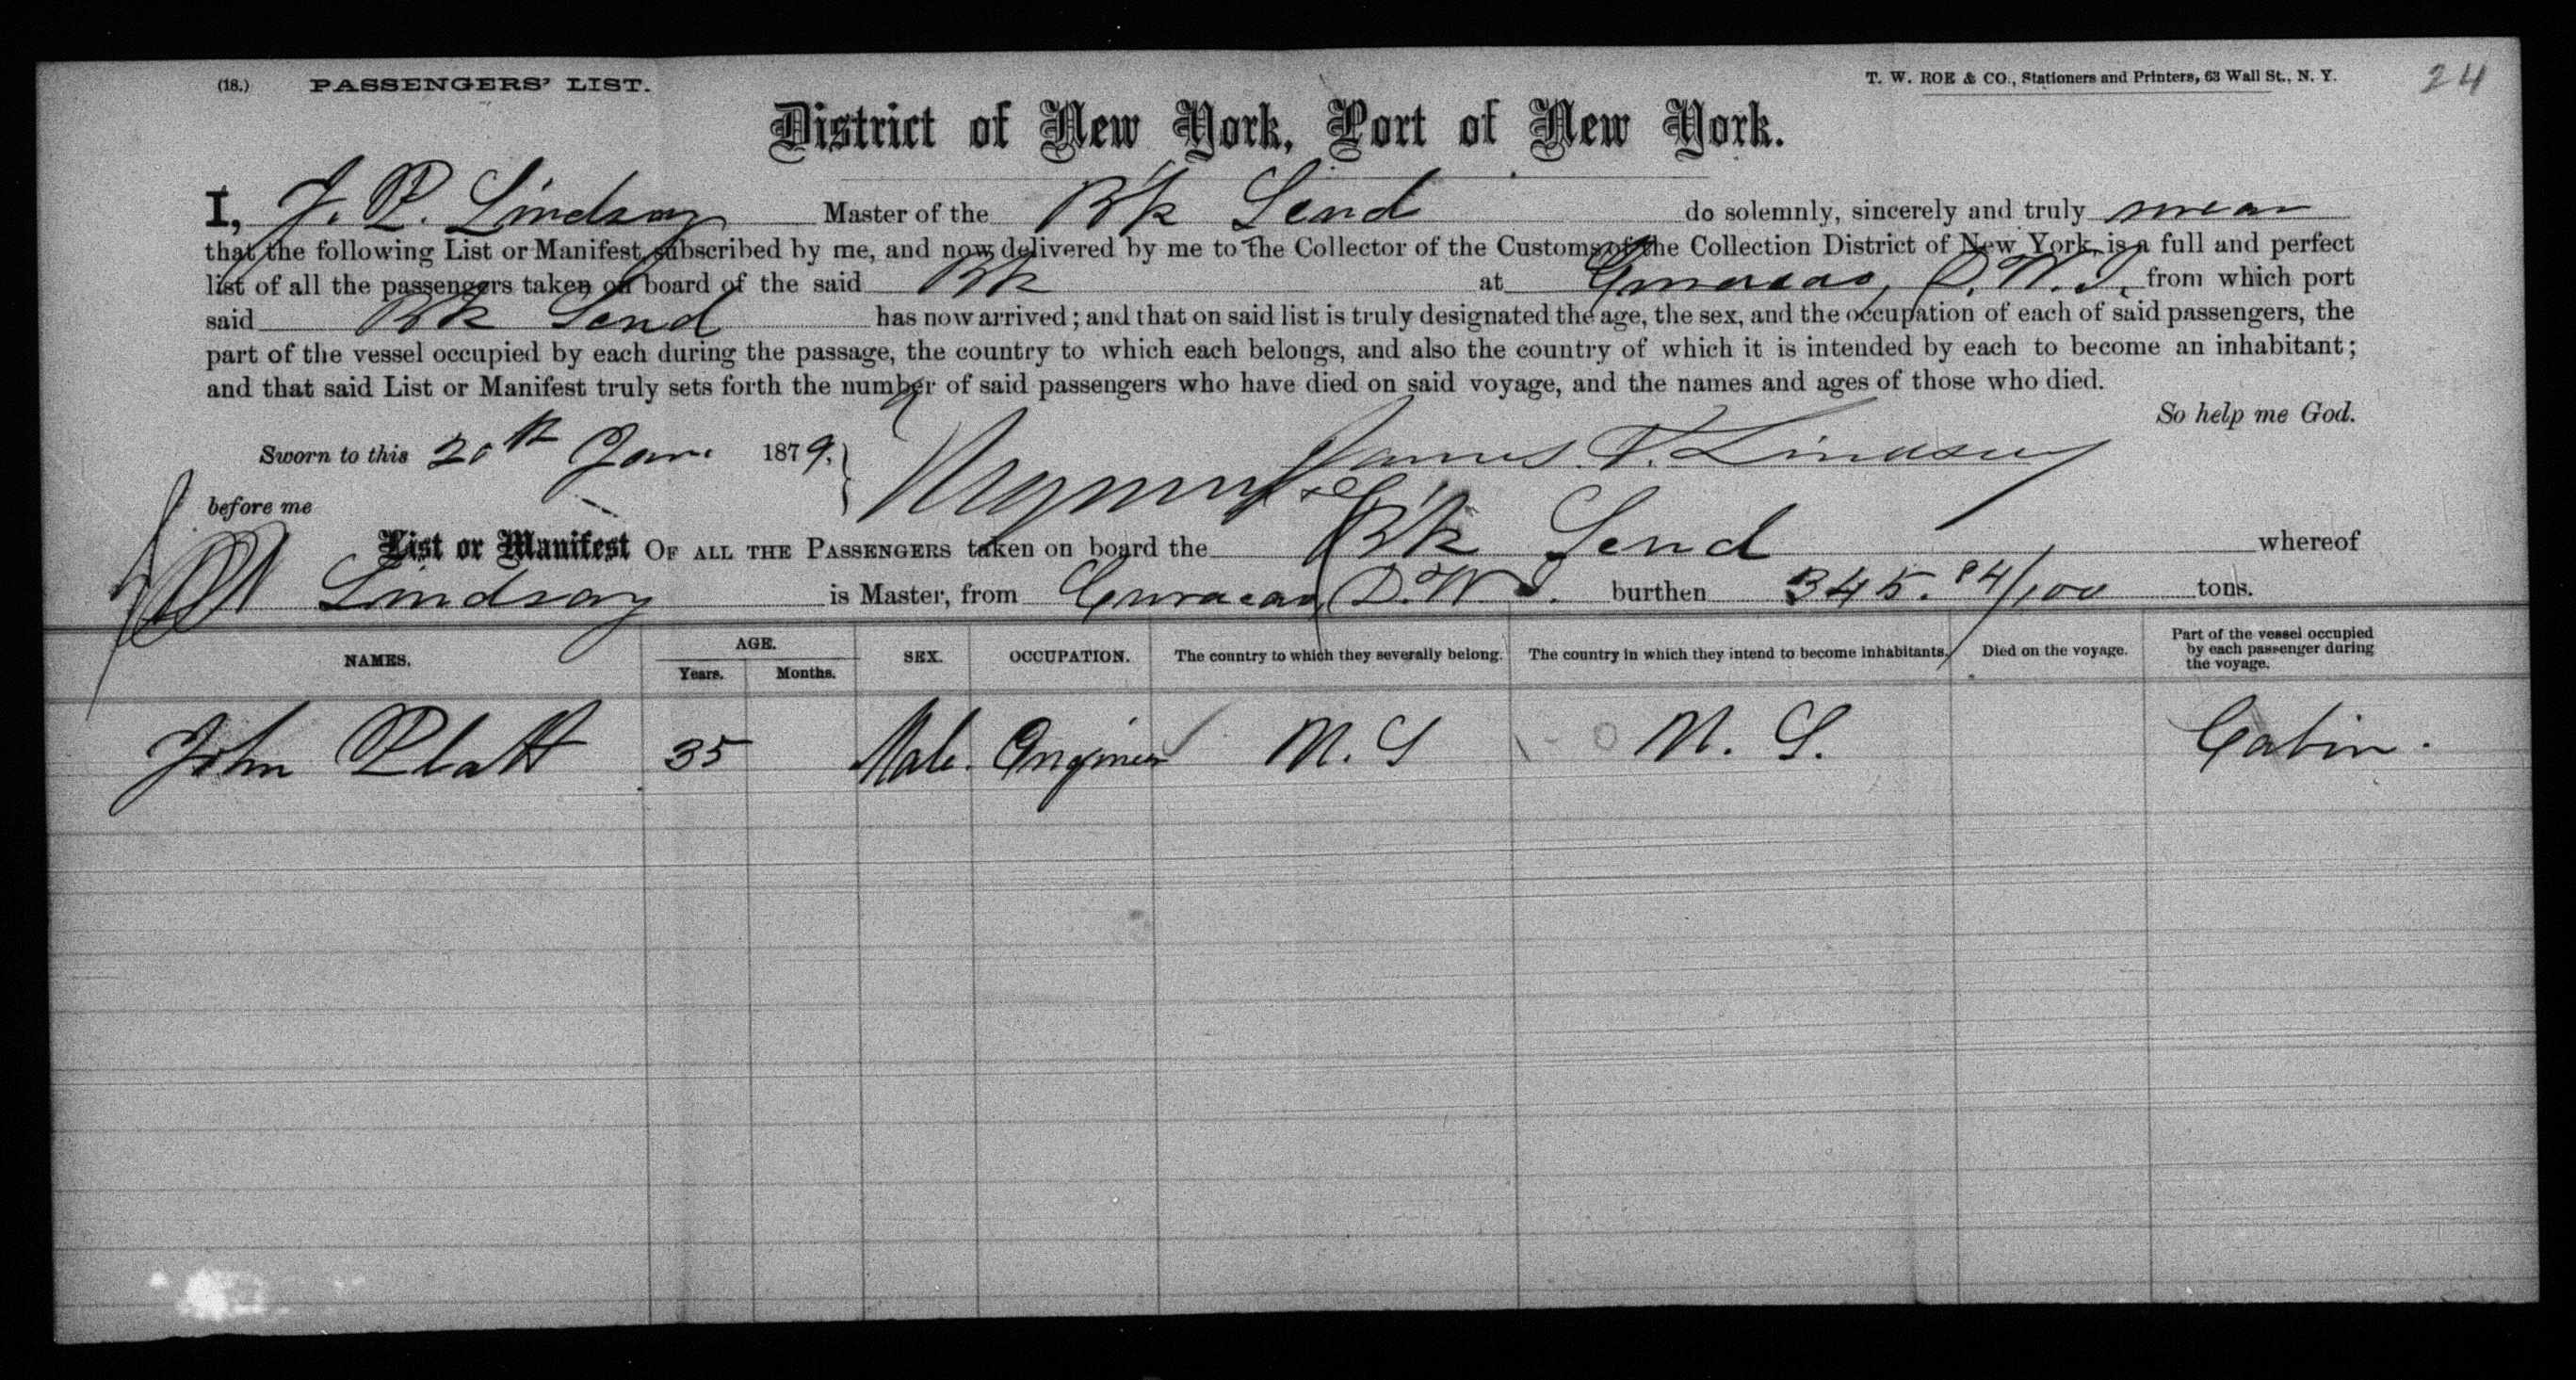 (18.) PASSENGERS' LIST. T. W. ROE & CO., Stationers and Printers, 63 Wall St., N. Y. 24
District of New York, Port of New York.
I, J. P. Lindsay Master of the B'k Lend do solemnly, sincerely and truly swear
that the following List or Manifest, subscribed by me, and now delivered by me to the Collector of the Customs of the Collection District of New York, is a full and perfect
list of all the passengers taken on board of the said Bk at Curacao, D. W. I. from which port
said Bk Lend has now arrived; and that on said list is truly designated the age, the sex, and the occupation of each of said passengers, the
part of the vessel occupied by each during the passage, the country to which each belongs, and also the country of which it is intended by each to become an inhabitant;
and that said List or Manifest truly sets forth the number of said passengers who have died on said voyage, and the names and ages of those who died.
So help me God.
Sworn to this 20th Jan. 1879. James P. Lindsay
before me
List or Manifest OF ALL THE PASSENGERS taken on board the B'k Lend whereof
Lindsay is Master, from Curacao, D. W. I. burthen 345. 94/100 tons.
NAMES. AGE. Years. Months. SEX. OCCUPATION. The country to which they severally belong. The country in which they intend to become inhabitants. Died on the voyage. Part of the vessel occupied by each passenger during the voyage.
John Platt 35 Male. Engineer U. S U. S. Cabin.